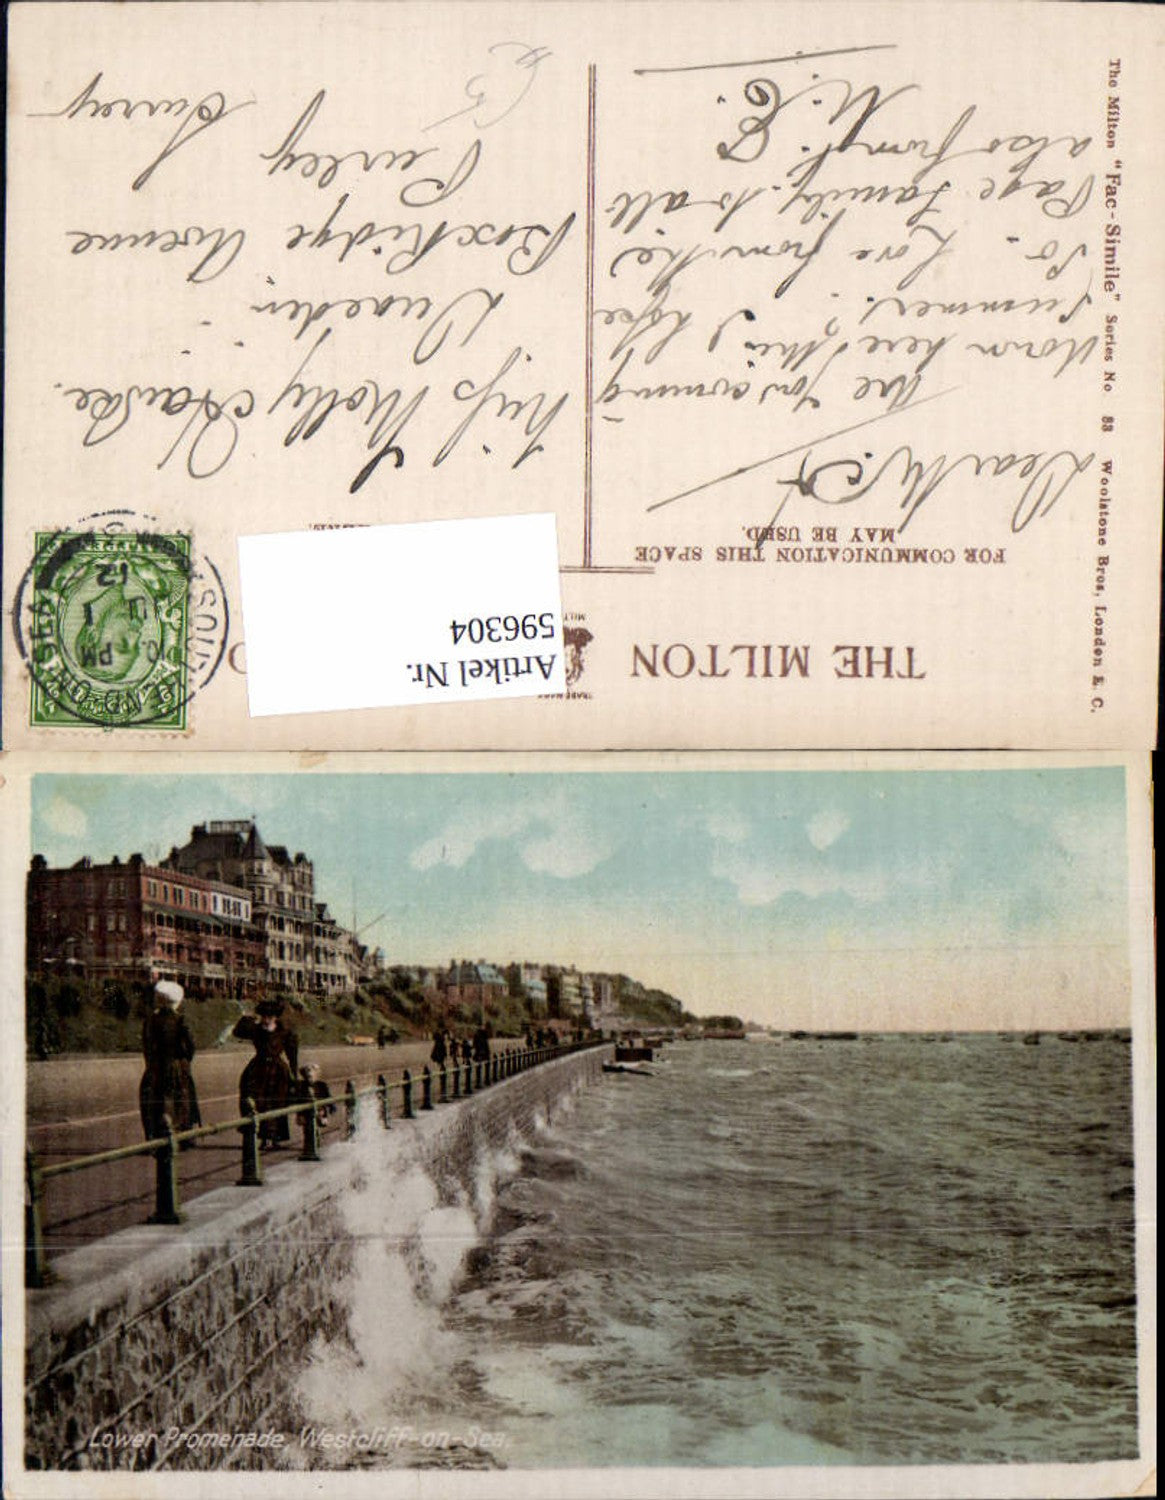 THE MILTON
Artikel Nr.
596304
FOR COMMUNICATION THIS SPACE
MAY BE USED.
SOUTHEND ON SEA
PM
1
12
Dear M.C.
Are you coming
down here this
Summer? I hope
So. Love from the
Page Family. to all
also from
M. C.
Miss Molly
Dunedin
Box Ridge Avenue
Purley
Surrey
The Milton "Fac-Simile" Series No 83 Woolstone Bros, London E. C.
Lower Promenade, Westcliff-on-Sea.